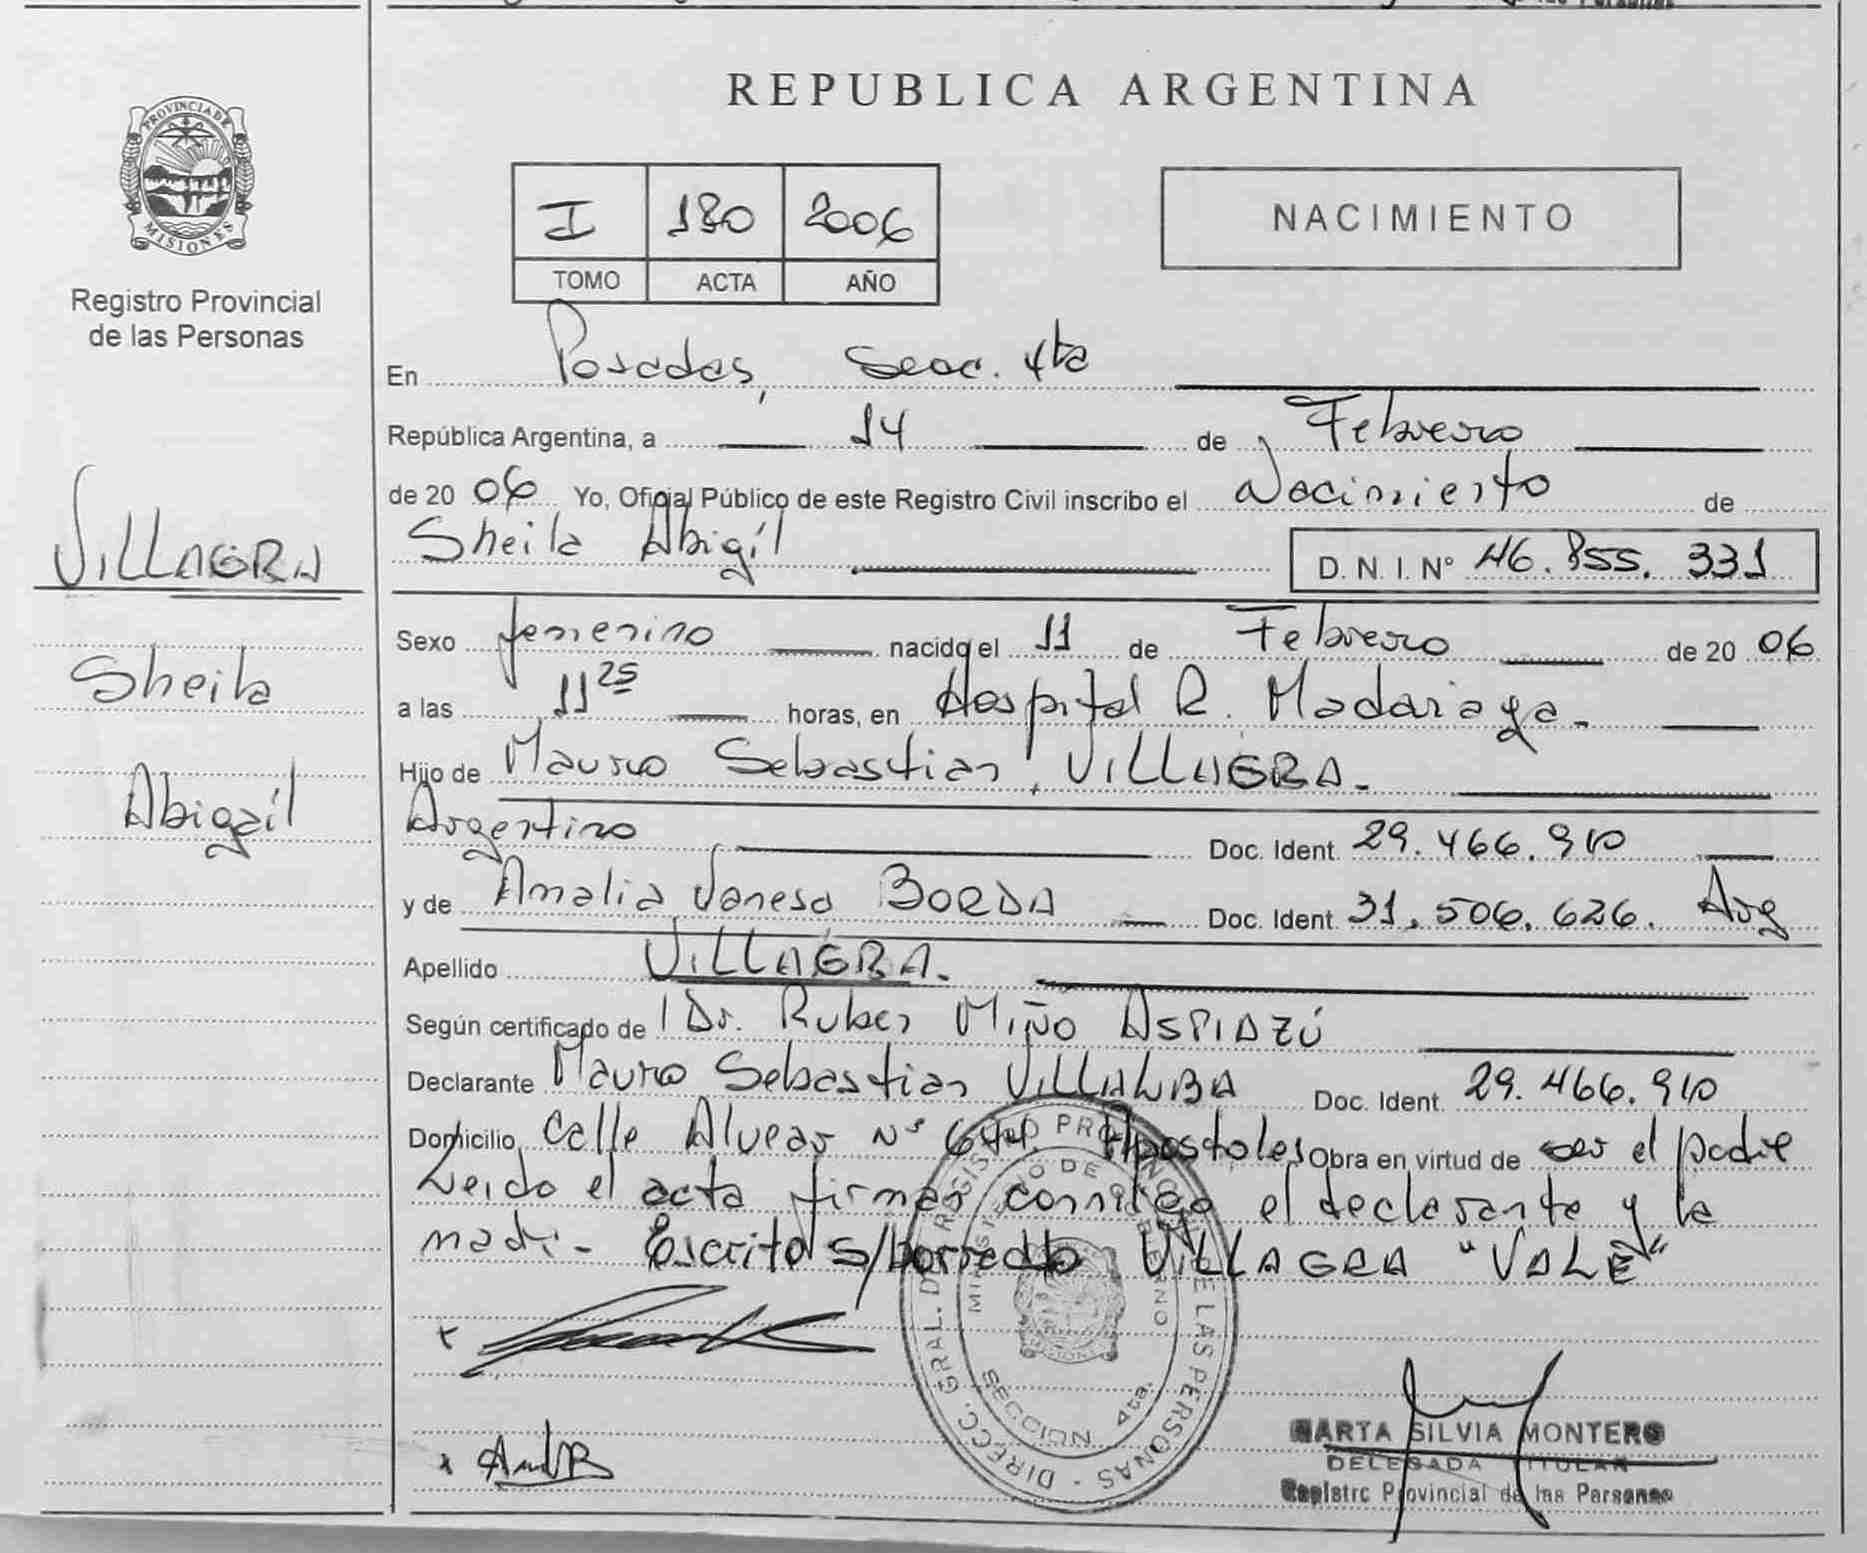 PROVINCIA DE
MISIONES
Registro Provincial
de las Personas
VILLAGRA
Sheila
Abigail
REPUBLICA ARGENTINA
I 180 2006
TOMO ACTA AÑO
NACIMIENTO
En Posadas, Secc. 4ta
República Argentina, a 14 de Febrero
de 20 06 Yo, Oficial Público de este Registro Civil inscribo el Nacimiento de
Sheila Abigíl D. N. I. Nº 46.855.331
Sexo femenino nacido el 11 de Febrero de 20 06
a las 11 25 horas, en Hospital R. Madariaga.
Hijo de Mauro Sebastian VILLAGRA.
Argentino Doc. Ident. 29.466.910
y de Amalia Vanesa BORDA Doc. Ident. 31.506.626. Arg
Apellido VILLAGRA.
Según certificado de Dr. Ruben Miño ASPIAZÚ
Declarante Mauro Sebastian VILLALBA Doc. Ident. 29.466.910
Domicilio Calle Alvear Nº 644 Apostoles Obra en virtud de ser el padre
Leido el acta firman conmigo el declarante y la
madre- Escrito s/borrado VILLAGRA "VALE"
DIRECC. GRAL. DE REGISTRO PROVINCIAL DE LAS PERSONAS
MINISTERIO DE GOBIERNO
SECCION 4ta.
MARTA SILVIA MONTERO
DELEGADA TITULAR
Registro Provincial de las Personas